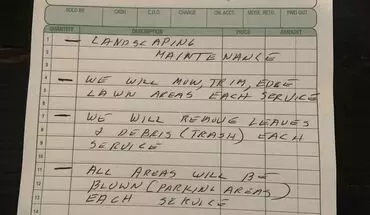 SOLD BY CASH C.O.D. CHARGE ON. ACCT. MDSE. RETD. PAID OUT
QUANTITY DESCRIPTION PRICE AMOUNT
1 — LANDSCAPING
2 MAINTENANCE
3
4 — WE WILL MOW, TRIM, EDGE
5 LAWN AREAS EACH SERVICE
6
7 — WE WILL REMOVE LEAVES
8 & DEBRIS (TRASH) EACH
9 SERVICE
10
11 — ALL AREAS WILL BE
12 BLOWN (PARKING AREAS)
13 EACH SERVICE